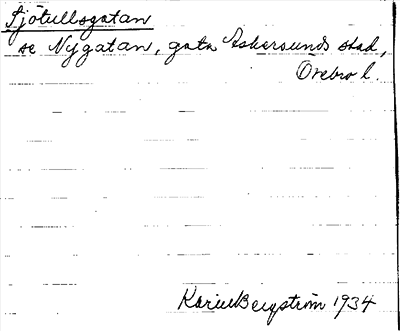 Sjötullsgatan
se Nygatan, gata Askersunds stad,
Örebro l.
Karin Bergström 1934